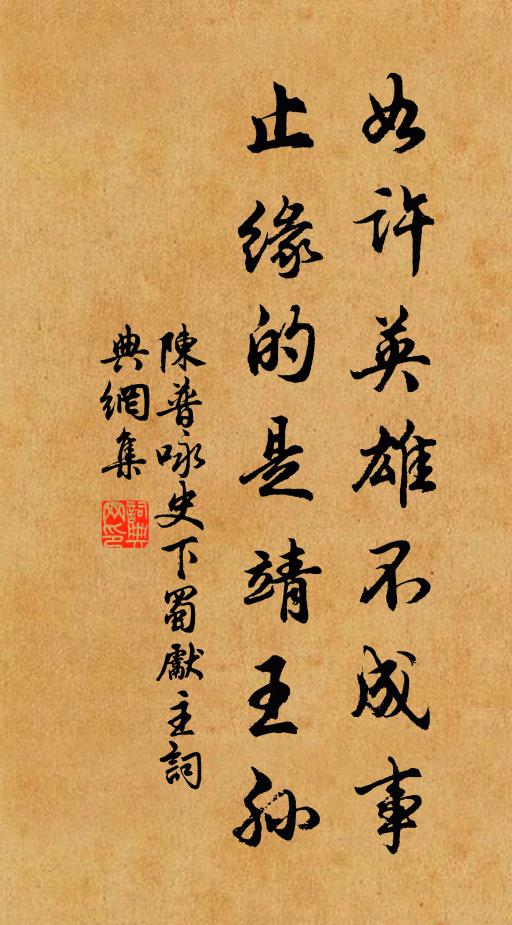 如許英雄不成事
止緣的是靖王孫
陳普咏史下蜀獻主詞
典網集
詞典網印